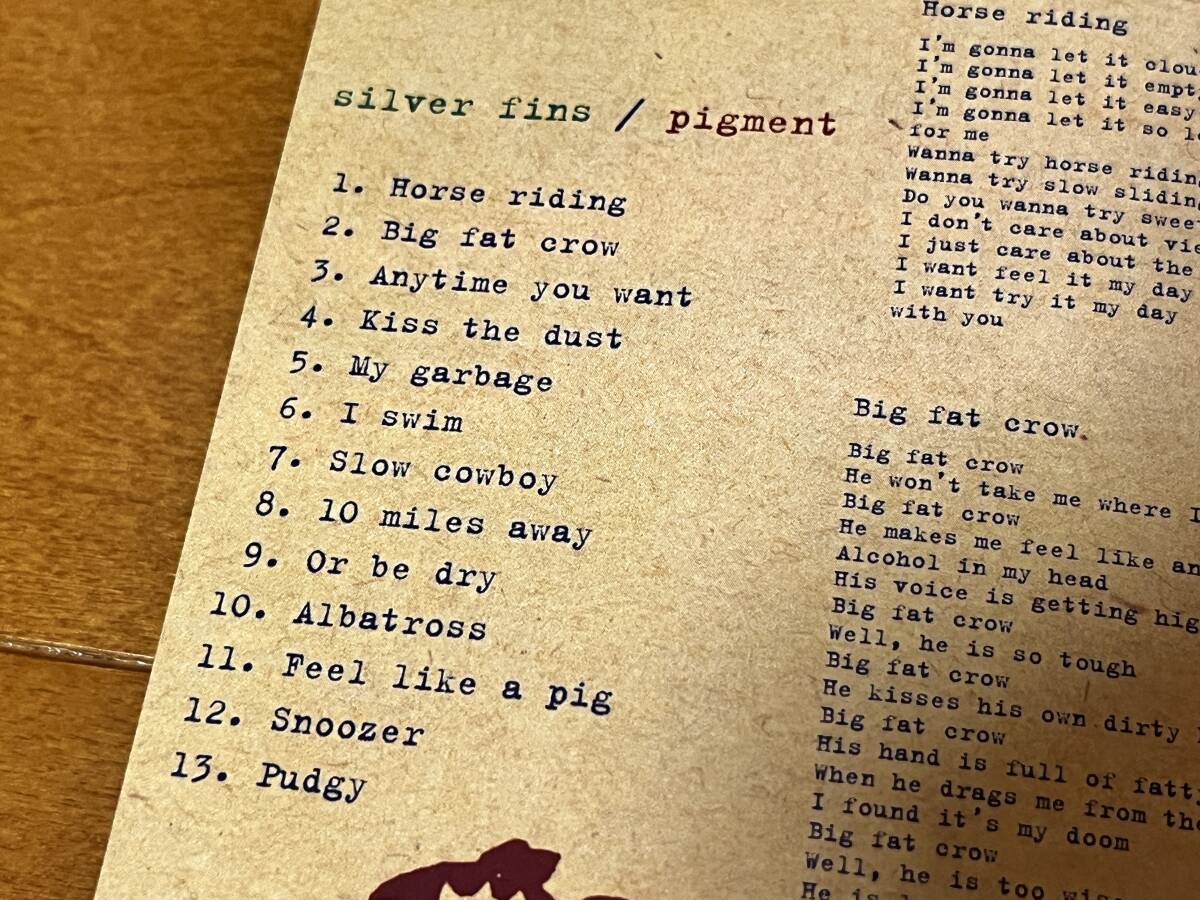 silver fins / pigment
1. Horse riding
2. Big fat crow
3. Anytime you want
4. Kiss the dust
5. My garbage
6. I swim
7. Slow cowboy
8. 10 miles away
9. Or be dry
10. Albatross
11. Feel like a pig
12. Snoozer
13. Pudgy
Horse riding
I'm gonna let it
I'm gonna let it
I'm gonna let it easy
I'm gonna let it so
for me
Wanna try horse
Wanna try slow
Do you wanna try
I don't care about
I just care about the
I want feel it my day
I want try it my day
with you
Big fat crow
Big fat crow
He won't take me where I
Big fat crow
He makes me feel like
Alcohol in my head
His voice is getting
Big fat crow
Well, he is so tough
Big fat crow
He kisses his own dirty
Big fat crow
His hand is full of
When he drags me from
I found it's my doom
Big fat crow
Well, he is too
He is